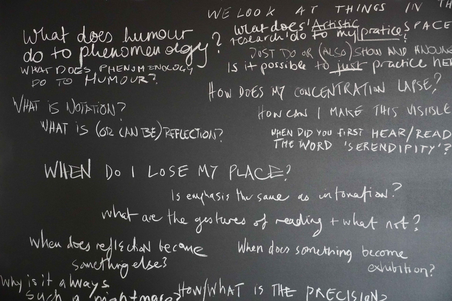 WE LOOK AT THINGS IN TH
What does humour
do to phenomenology?
WHAT DOES PHENOMENOLOGY
DO TO HUMOUR?
What does 'Artistic
research' do to my practice?
SPACE
JUST DO OR (ALSO) SHOW AND
Is it possible to just practice her
HOW DOES MY CONCENTRATION LAPSE?
WHAT IS NOTATION?
HOW CAN I MAKE THIS VISIBLE
WHAT IS (OR CAN BE) REFLECTION?
WHEN DID YOU FIRST HEAR/READ
THE WORD 'SERENDIPITY'?
WHEN DO I LOSE MY PLACE?
Is emphasis the same as intonation?
What are the gestures of reading + what not?
When does reflection become
something else?
When does something become
exhibition?
Why is it always
such a nightmare?
HOW/WHAT IS THE PRECISION